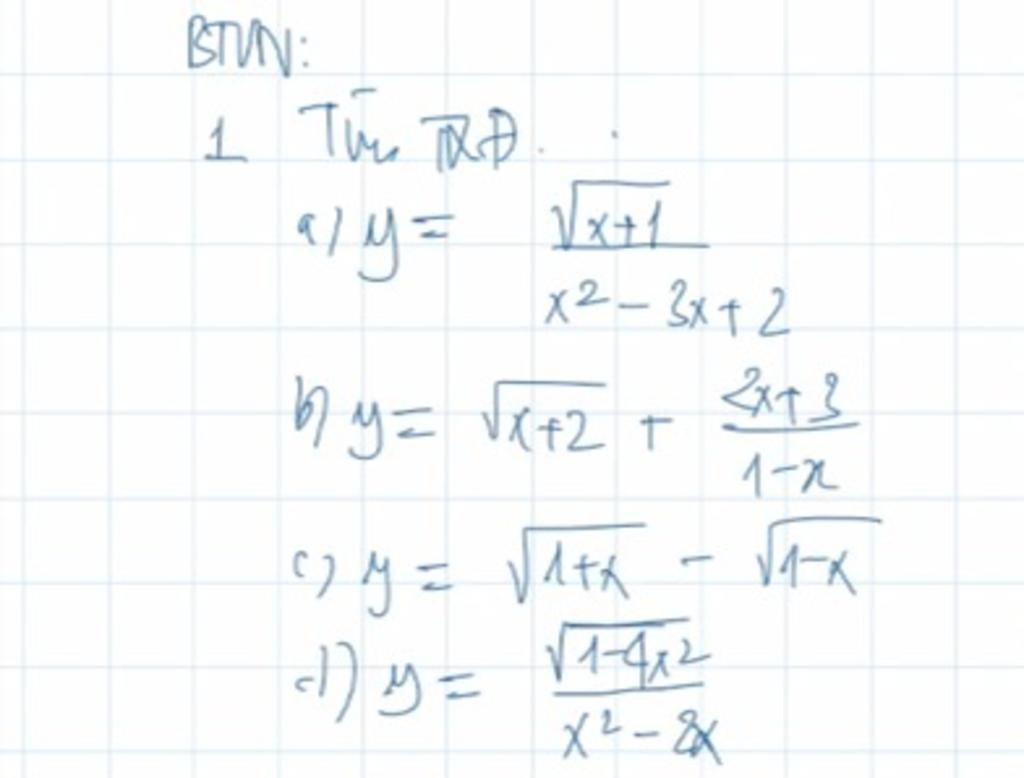 BTVN:
1 Tìm TXĐ.
a) y = √(x+1) / (x² - 3x + 2)
b) y = √(x+2) + (2x+3)/(1-x)
c) y = √(1+x) - √(1-x)
d) y = √(1-4x²) / (x² - 2x)